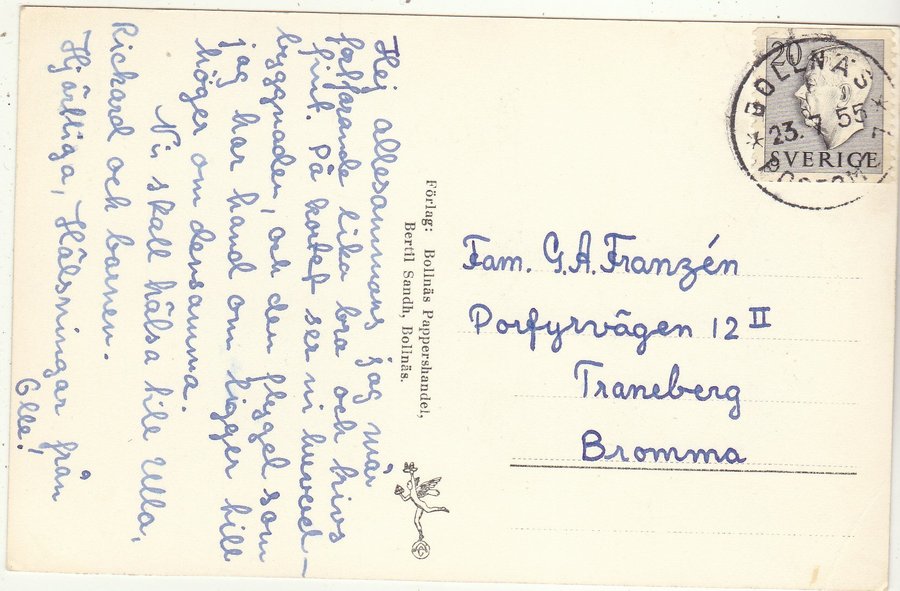 Hej allesammans jag mår
fortfarande lika bra och trivs
fint. På kortet ser ni huvud-
byggnaden, och den flygel som
jag har hand om ligger till
höger om densamma.
Ni skall hälsa till Ulla,
Rickard och barnen.
Hjärtliga, Hälsningar från
Olle!
Förlag: Bollnäs Pappershandel,
Bertil Sandh, Bollnäs.
20
SVERIGE
BOLLNÄS
23. 7 55
Fam. G.A. Franzén
Porfyrvägen 12 II
Traneberg
Bromma